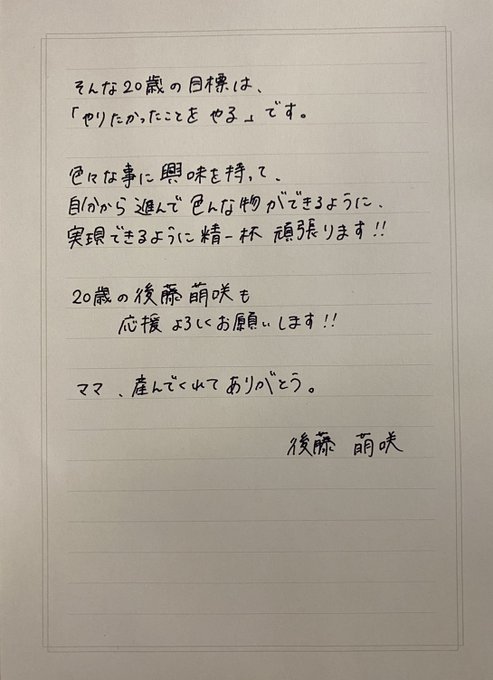 そんな20歳の目標は、
「やりたかったことを やる」です。
色々な事に興味を持って、
自分から進んで色んな物ができるように、
実現できるように精一杯 頑張ります!!
20歳の後藤萌咲も
応援よろしくお願いします!!
ママ、産んでくれてありがとう。
後藤 萌咲